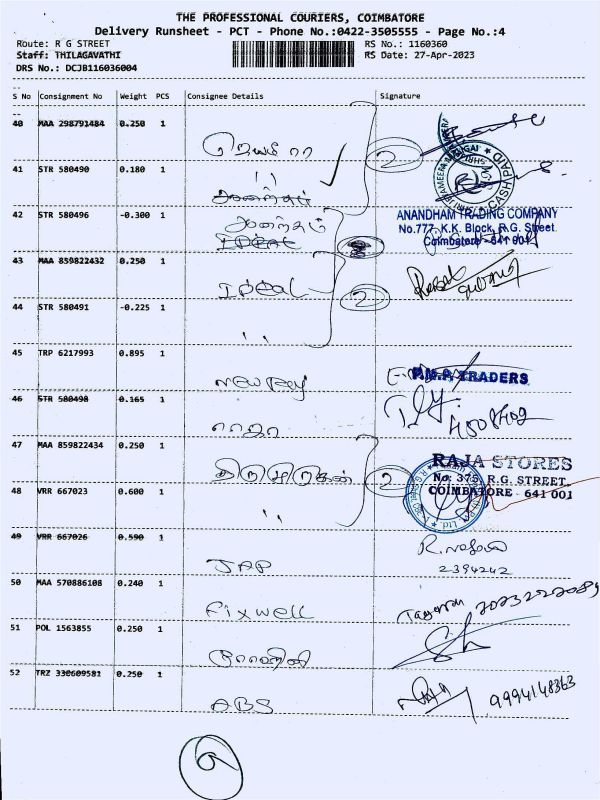 THE PROFESSIONAL COURIERS, COIMBATORE
Delivery Runsheet - PCT - Phone No.:0422-3505555 - Page No.:4
Route: R G STREET RS No.: 1160360
Staff: THILAGAVATHI RS Date: 27-Apr-2023
DRS No.: DCJB116036004
S No Consignment No Weight PCS Consignee Details Signature
40 MAA 298791484 0.250 1
2
CASH PAID
41 STR 580490 0.180 1
,,
42 STR 580496 -0.300 1
ANANDHAM TRADING COMPANY
No.777, K.K. Block, R.G. Street
Coimbatore - 641 001
43 MAA 859822432 0.250 1 Ideal
2
44 STR 580491 -0.225 1
,,
45 TRP 6217993 0.895 1 P.M.P. TRADERS
46 STR 580498 0.165 1 ராஜா
47 MAA 859822434 0.250 1 திருமுருகன் 2
RAJA STORES
No: 375, R.G. STREET
COIMBATORE - 641 001
48 VRR 667023 0.600 1
,,
49 VRR 667026 0.590 1 JAP
2394242
50 MAA 570886108 0.240 1 Fixwell
51 POL 1563855 0.250 1
52 TRZ 330609581 0.250 1 ABS 9994148363